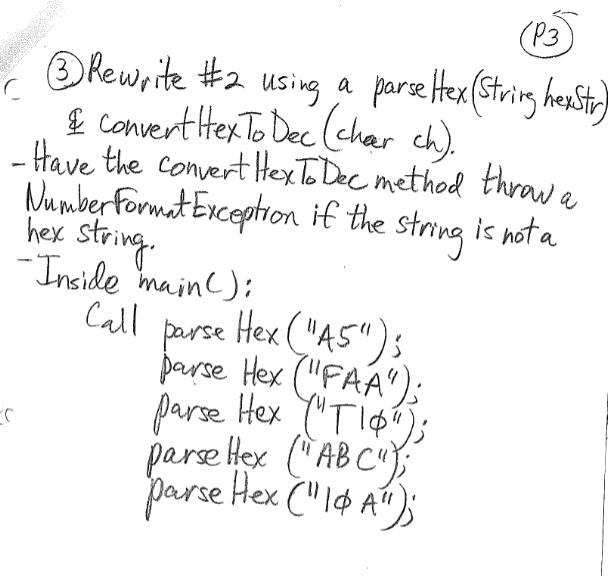 P3
③ Rewrite #2 using a parseHex(String hexStr)
& convertHexToDec(char ch).
- Have the convertHexToDec method throw a
NumberFormatException if the string is not a
hex string.
- Inside main():
Call parseHex("A5");
parseHex("FAA");
parseHex("T1φ");
parseHex("ABC");
parseHex("1φA");